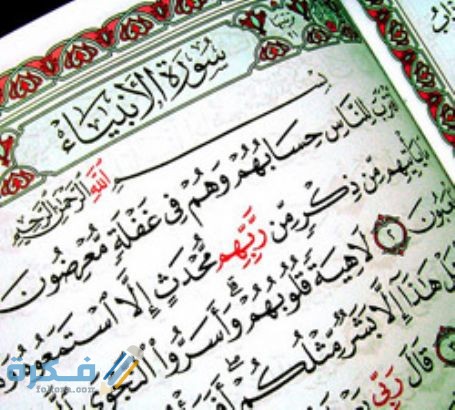 سُورَةُ الأَنبِيَاءِ
بِسْمِ ٱللَّهِ ٱلرَّحْمَٰنِ ٱلرَّحِيمِ
رَبَ لِلنَّاسِ حِسَابُهُمْ وَهُمْ فِى غَفْلَةٍ مُّعْرِضُونَ
يَأْتِيهِم مِّن ذِكْرٍ مِّن رَّبِّهِم مُّحْدَثٍ إِلَّا ٱسْتَمَعُوهُ وَ
عَبُونَ ٢ لَاهِيَةً قُلُوبُهُمْ ۗ وَأَسَرُّوا۟ ٱلنَّجْوَى
هَلْ هَٰذَآ إِلَّا بَشَرٌ مِّثْلُكُمْ ۖ
قَالَ رَبِّى
فكرة